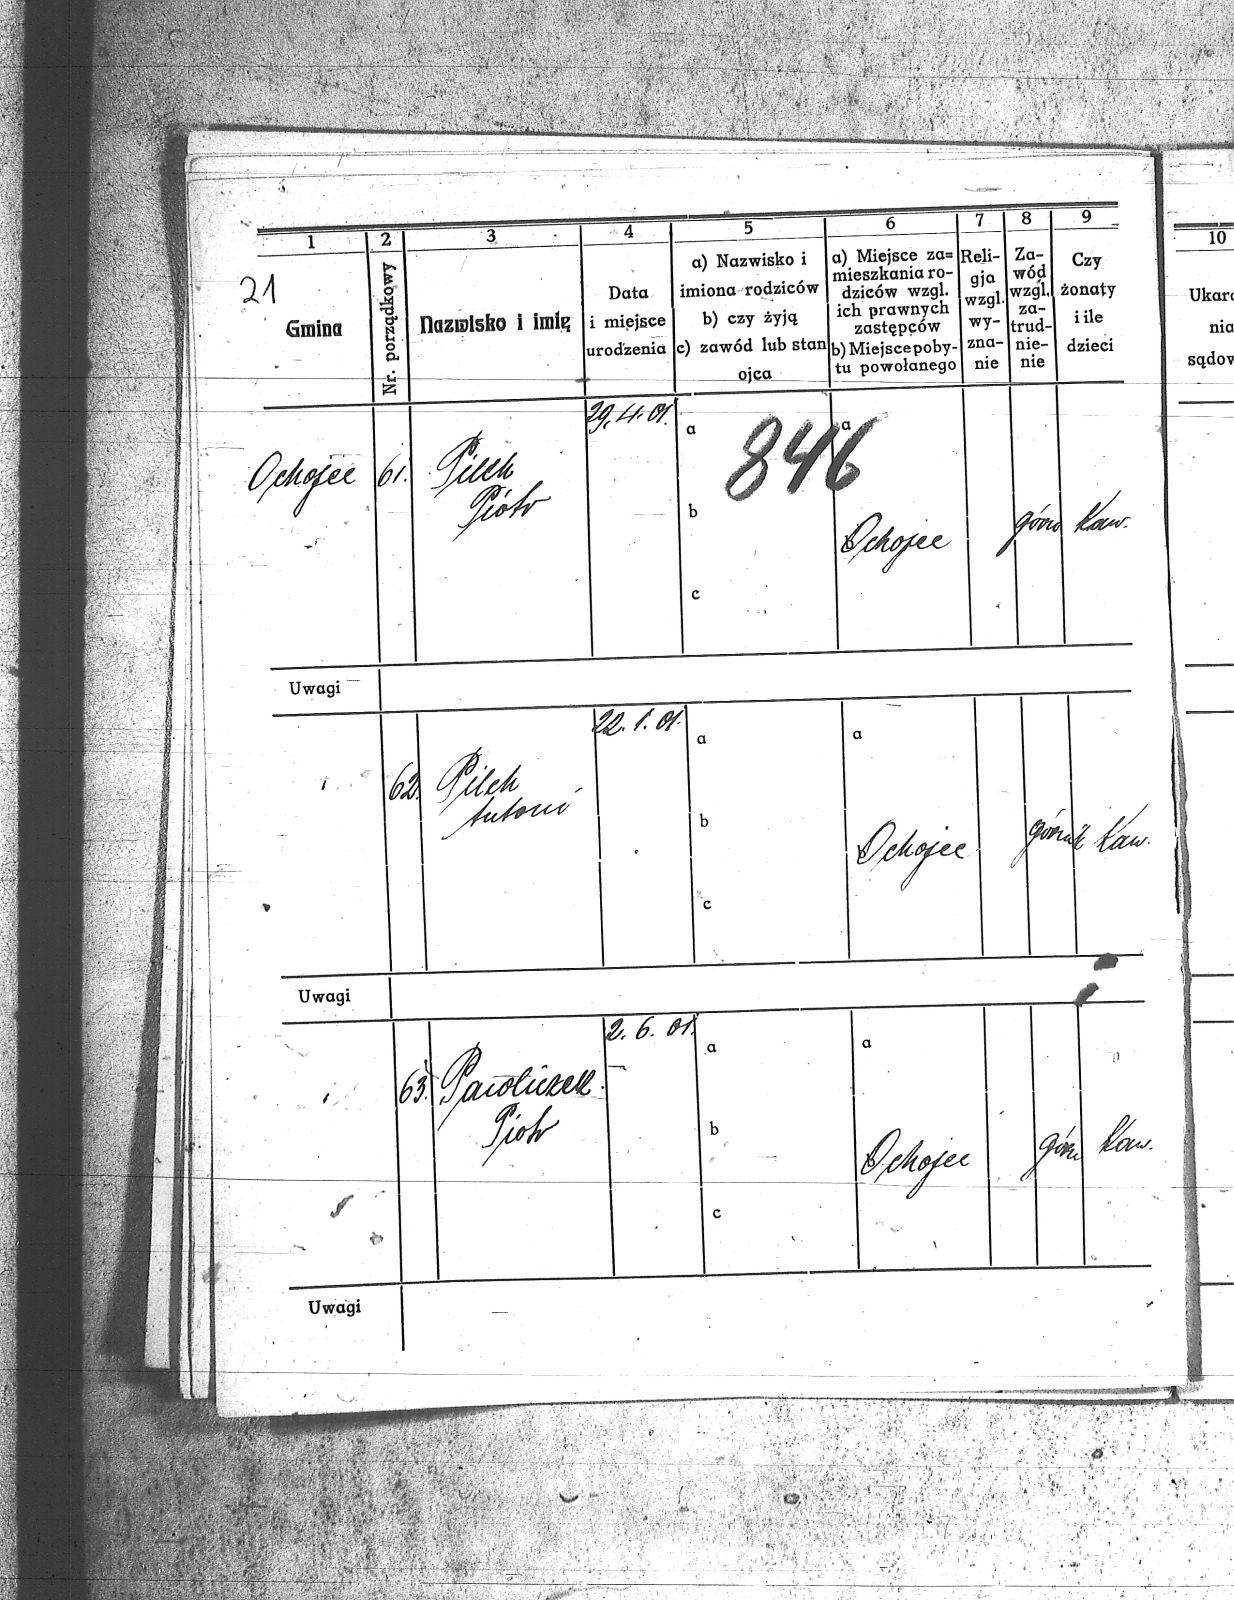 21
1 2 3 4 5 6 7 8 9
Gmina
Nr. porządkowy
Nazwisko i imię
Data
i miejsce
urodzenia
a) Nazwisko i
imiona rodziców
b) czy żyją
c) zawód lub stan
ojca
a) Miejsce za=
mieszkania ro-
dziców wzgl.
ich prawnych
zastępców
b) Miejsce poby-
tu powołanego
Reli-
gja
wzgl.
wy-
zna-
nie
Za-
wód
wzgl.
za-
trud-
nie-
nie
Czy
żonaty
i ile
dzieci
10
Ukara
nia
sądow
846
29.4.01.
a a
Ochojec 61. Pilch
Piotr
b
Ochojec górn Kaw.
c
Uwagi
22.1.01.
a a
62. Pilch
Antoni
b
Ochojec górnik Kaw.
c
Uwagi
2.6.01.
a a
63.
Piotr
b
Ochojec górn Kaw.
c
Uwagi